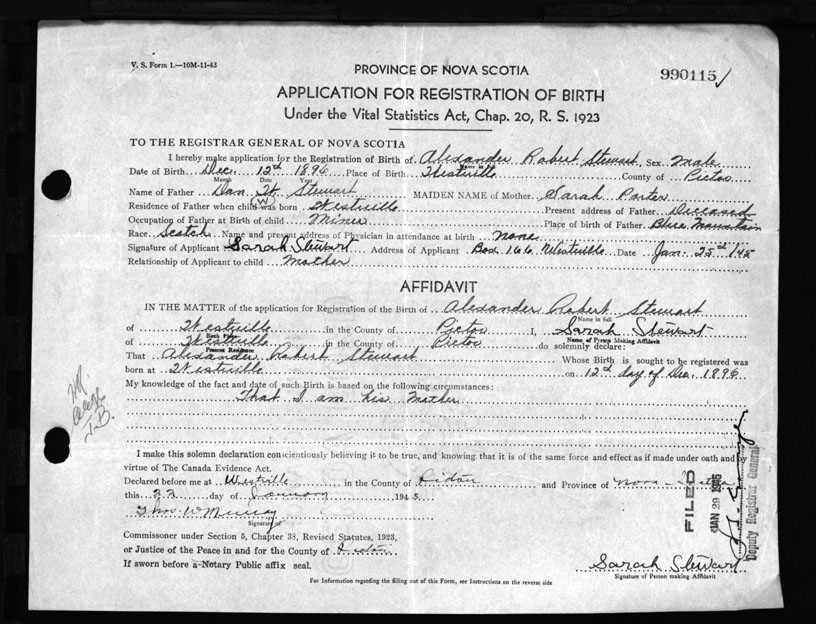 V. S. Form 1.—10M-11-43
PROVINCE OF NOVA SCOTIA
990115
APPLICATION FOR REGISTRATION OF BIRTH
Under the Vital Statistics Act, Chap. 20, R. S. 1923
TO THE REGISTRAR GENERAL OF NOVA SCOTIA
I hereby make application for the Registration of Birth of Alexander Robert Stewart, Sex Male
Name in full
Date of Birth Dec. 12th 1896 Place of Birth Westville County of Pictou
Month Date Year
Name of Father Dan W. Stewart MAIDEN NAME of Mother Sarah Porter
Residence of Father when child was born Westville Present address of Father Deceased
Occupation of Father at Birth of child Miner Place of birth of Father Blue Mountain
Race Scotch Name and present address of Physician in attendance at birth none
Signature of Applicant Sarah Stewart Address of Applicant Box 166 Westville Date Jan. 25th /45
Relationship of Applicant to child Mother
AFFIDAVIT
IN THE MATTER of the application for Registration of the Birth of Alexander Robert Stewart
Name in full
of Westville in the County of Pictou I, Sarah Stewart
Name of Person Making Affidavit
of Westville in the County of Pictou do solemnly declare:
Present Residence
That Alexander Robert Stewart Whose Birth is sought to be registered was
born at Westville on 12th day of Dec. 1896
My knowledge of the fact and date of such Birth is based on the following circumstances:
That I am his Mother
I make this solemn declaration conscientiously believing it to be true, and knowing that it is of the same force and effect as if made under oath and by
virtue of The Canada Evidence Act.
Declared before me at Westville in the County of Pictou and Province of Nova Scotia
this day of January 1945
Thos. W Murray
Signature of
Commissioner under Section 5, Chapter 38, Revised Statutes, 1923,
or Justice of the Peace in and for the County of Pictou
If sworn before a Notary Public affix seal.
Sarah Stewart
Signature of Person making Affidavit
For Information regarding the filling out of this Form, see Instructions on the reverse side
FILED
JAN 29 1945
Deputy Registrar General
J.B.